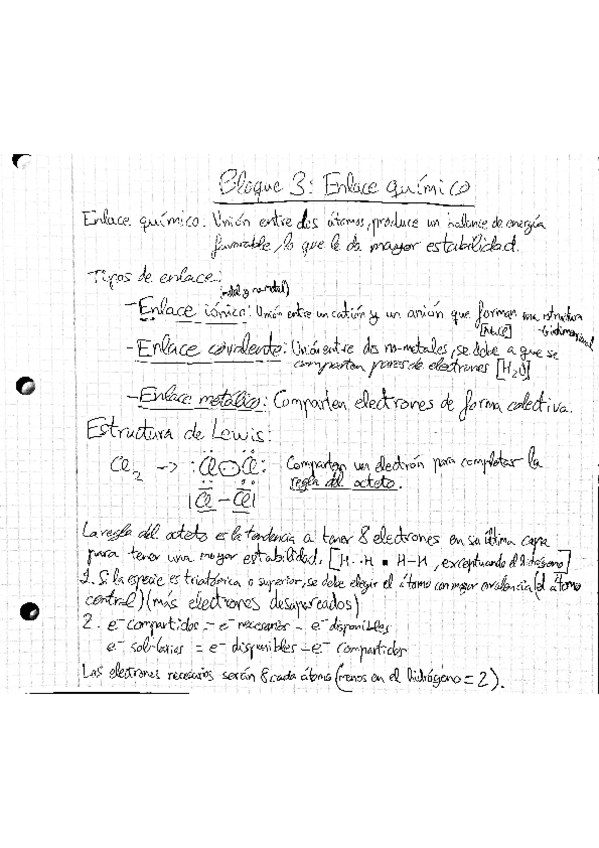 Bloque 3: Enlace químico
Enlace químico: Unión entre dos átomos, produce un ballance de energía
favorable, lo que le da mayor estabilidad.
Tipos de enlace:
(metal y no-metal)
- Enlace iónico: Unión entre un catión y un anión que forman una estructura
[NaCl] tridimensional
- Enlace covalente: Unión entre dos no-metales, se debe a que se
comparten pares de electrones [H₂O]
- Enlace metálico: Comparten electrones de forma colectiva.
Estructura de Lewis:
Cl₂ -> :Cl Cl: Comparten un electrón para completar la
regla del octeto.
|Cl - Cl|
La regla del octeto es la tendencia a tener 8 electrones en su última capa
para tener una mayor estabilidad. [H··H = H-H, exceptuando el hidrógeno]
1. Si la especie es triatómica o superior, se debe elegir el átomo con mayor covalencia (el átomo
central) (más electrones desapareados)
2. e⁻ compartidos = e⁻ necesarios - e⁻ disponibles
e⁻ solitarios = e⁻ disponibles - e⁻ compartidos
Los electrones necesarios serán 8 cada átomo (menos en el hidrógeno = 2).